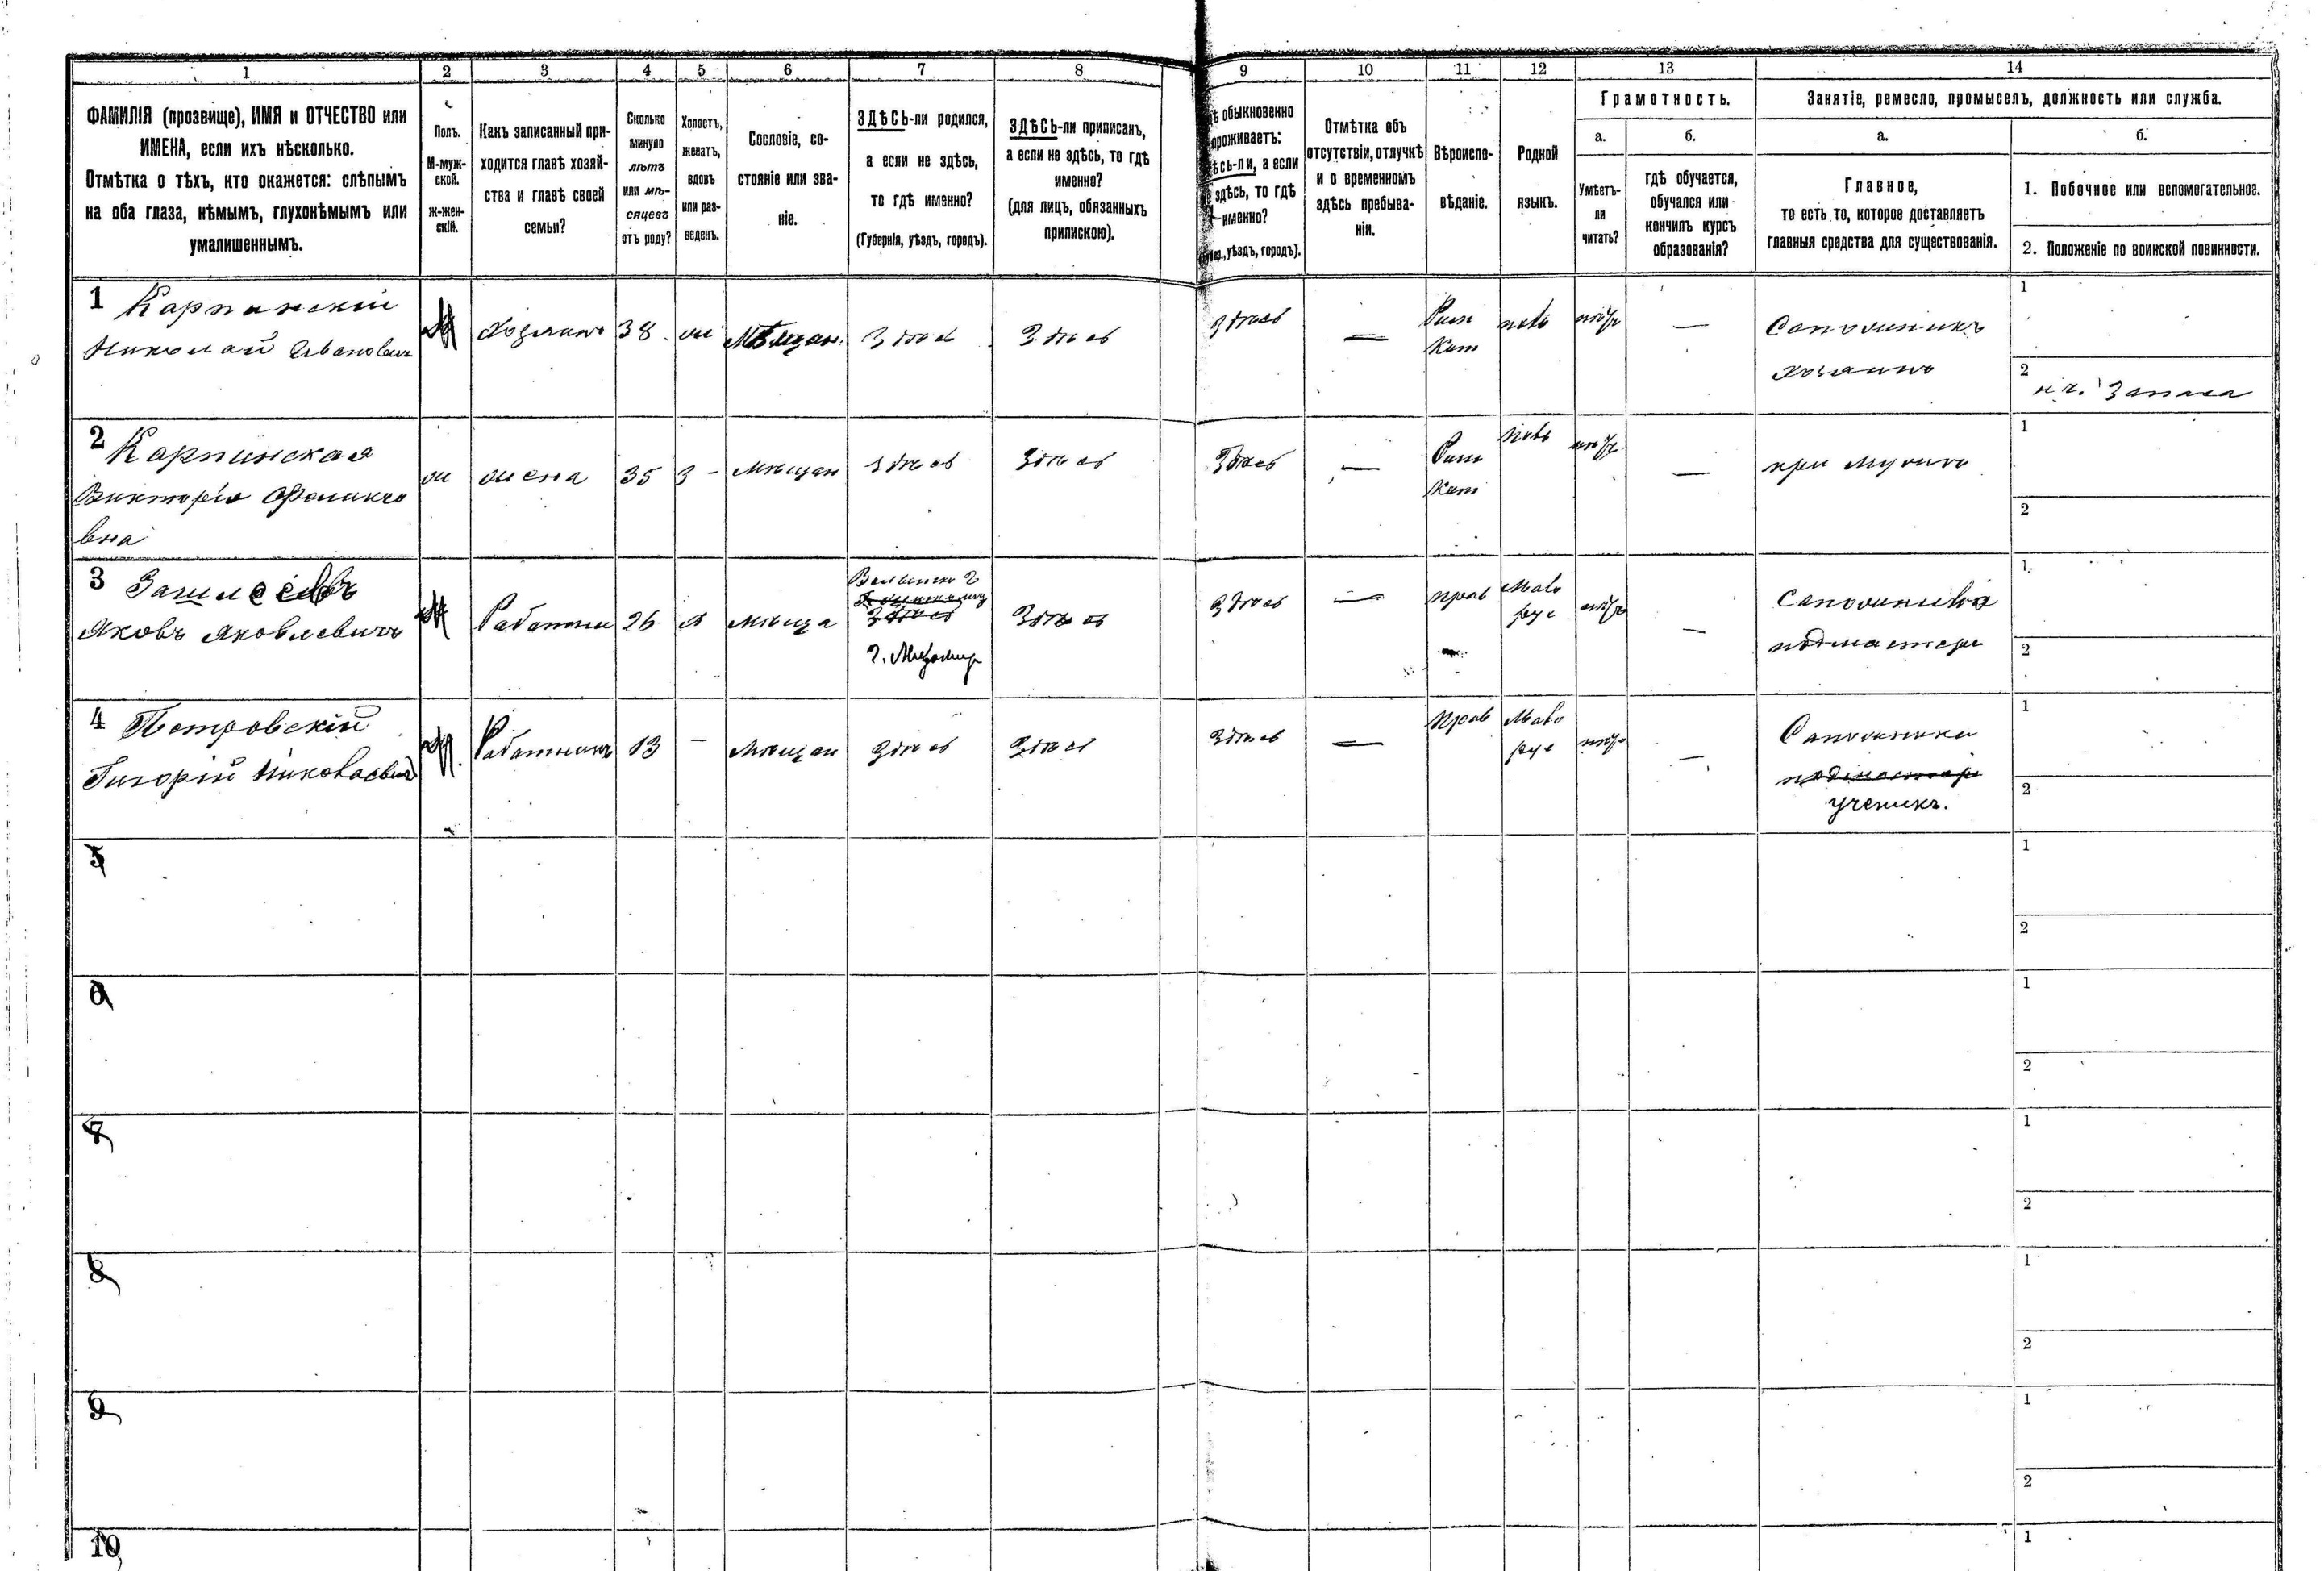 1 2 3 4 5 6 7 8 9 10 11 12 13 14
ФАМИЛІЯ (прозвище), ИМЯ и ОТЧЕСТВО или
ИМЕНА, если ихъ нѣсколько.
Отмѣтка о тѣхъ, кто окажется: слѣпымъ
на оба глаза, нѣмымъ, глухонѣмымъ или
умалишеннымъ.
Полъ.
М-муж-
ской.
ж-жен-
скій.
Какъ записанный при-
ходится главѣ хозяй-
ства и главѣ своей
семьи?
Сколько
минуло
лѣтъ
или мѣ-
сяцевъ
отъ роду?
Холостъ,
женатъ,
вдовъ
или раз-
веденъ.
Сословіе, со-
стояніе или зва-
ніе.
ЗДѢСЬ-ли родился,
а если не здѣсь,
то гдѣ именно?
(Губернія, уѣздъ, городъ).
ЗДѢСЬ-ли приписанъ,
а если не здѣсь, то гдѣ
именно?
(для лицъ, обязанныхъ
припискою).
обыкновенно
проживаетъ:
а если
здѣсь, то гдѣ
именно?
уѣздъ, городъ).
Отмѣтка объ
отсутствіи, отлучкѣ
и о временномъ
здѣсь пребыва-
ніи.
Вѣроиспо-
вѣданіе.
Родной
языкъ.
Грамотность.
а. б.
Умѣетъ-
ли
читать?
гдѣ обучается,
обучался или
кончилъ курсъ
образованія?
Занятіе, ремесло, промыселъ, должность или служба.
а. б.
Главное,
то есть то, которое доставляетъ
главныя средства для существованія.
1. Побочное или вспомогательное.
2. Положеніе по воинской повинности.
1 Карпинскій
Николай Иванович
М Хозяинъ 38 ж Мѣщан. Здѣсь Здѣсь Здѣсь —
Рим
Кат
—
Сапожникъ
хозяинъ
1
2 Запаса
2 Карпинская
Викторія
вна
ж жена 35 З - мѣщан Здѣсь Здѣсь Здѣсь —
Рим
Кат
—
при мужѣ
1
2
3
Яковъ Яковлевичъ
М 26 мѣща
Здѣсь
г. Житомир
Здѣсь Здѣсь —
прав
Мало
рус
—
подмастерье
1
2
4 Петровскій
Григорій Николаевич
М Работникъ 13 — мѣщан Здѣсь Здѣсь Здѣсь —
прав
Мало
рус
—
Сапожника
подмастер
ученикъ.
1
2
5
1
2
6
1
2
7
1
2
8
1
2
9
1
2
10
1